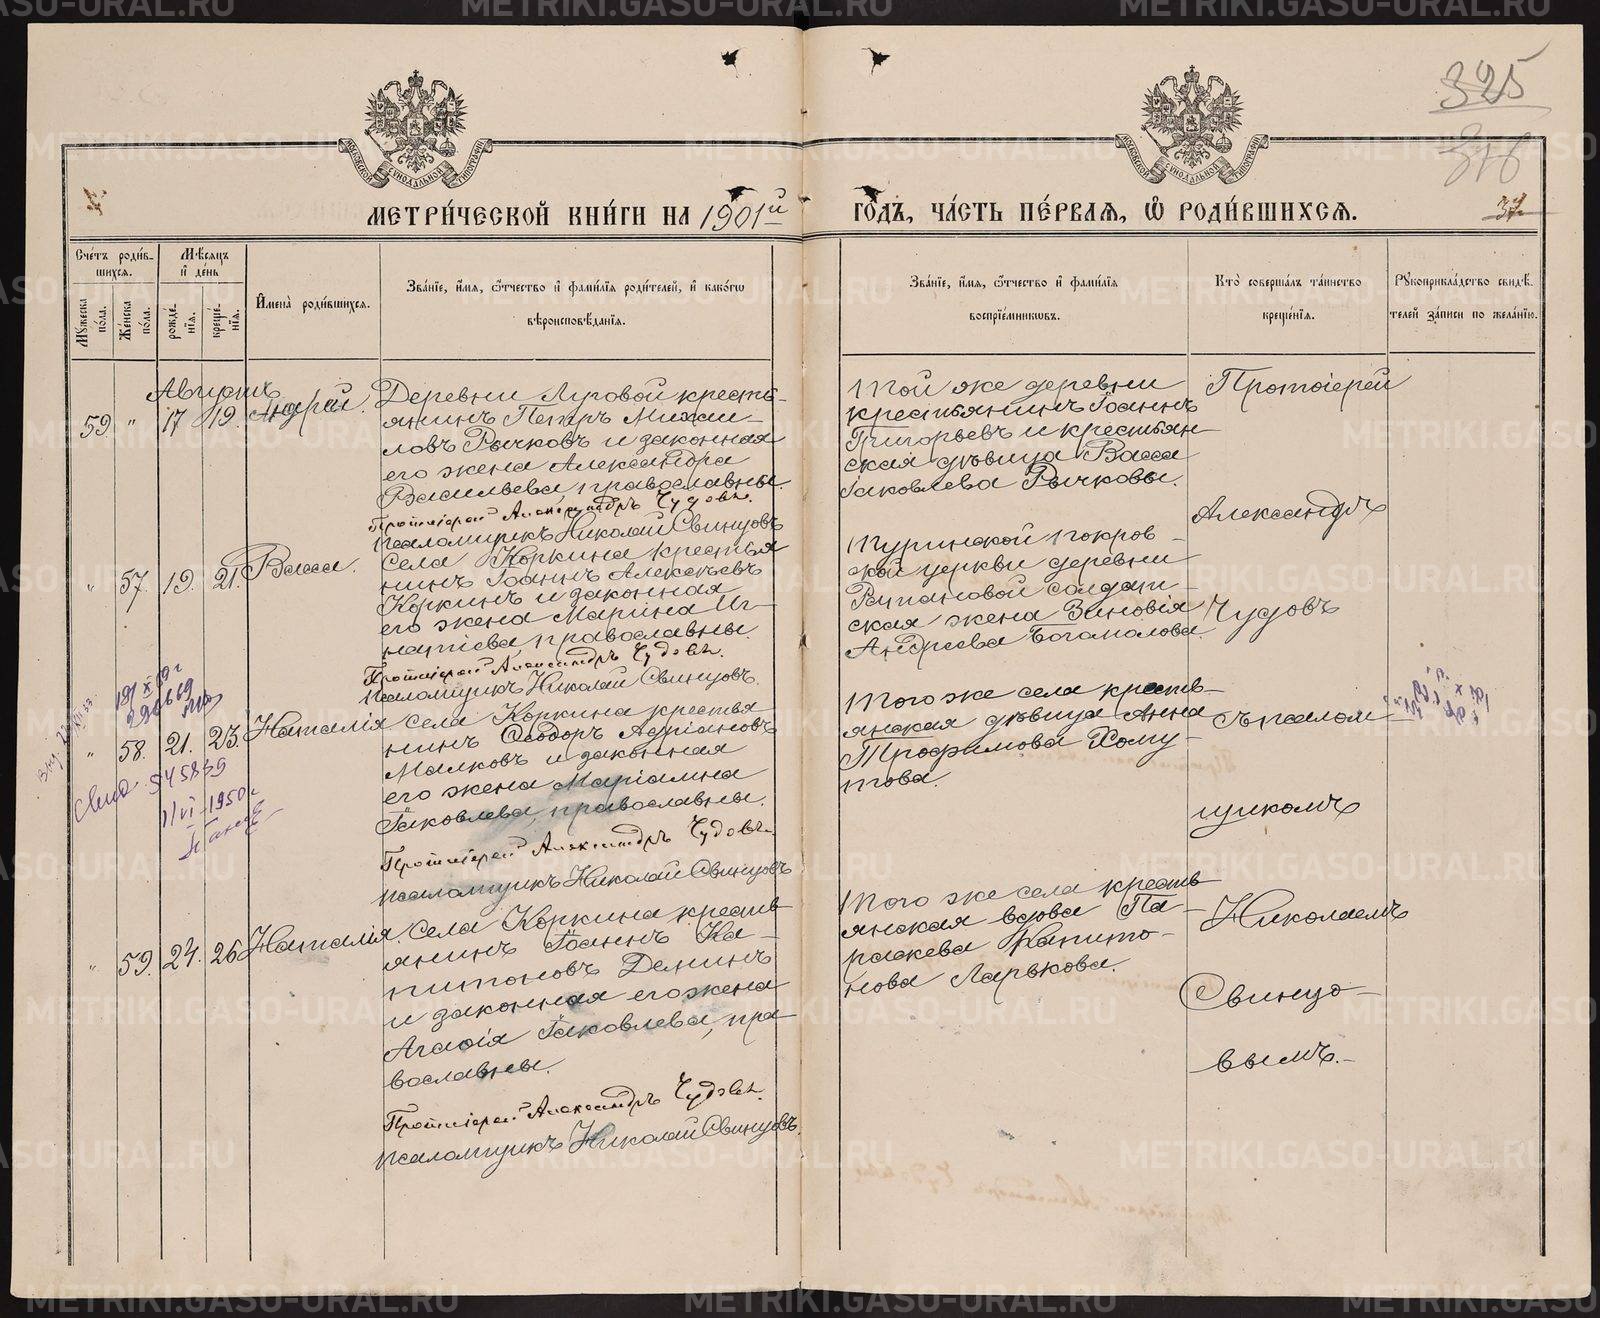 325
376
37
МОСКОВСКОЙ СѴНОДАЛЬНОЙ ТИПОГРАФІИ
МОСКОВСКОЙ СѴНОДАЛЬНОЙ ТИПОГРАФІИ
МЕТРИ́ЧЕСКОЙ КНИ́ГИ НА 1901й ГОДЪ, ЧА́СТЬ ПЕ́РВАѦ, Ѿ РОДИ́ВШИХСѦ.
Сче́тъ роди́в-
шихсѧ.
Мѣ́сѧцъ
и де́нь
Мꙋ́жеска
по́ла.
Же́нска
по́ла.
рожде́-
нїѧ.
креще́-
нїѧ.
Имена̀ роди́вшихсѧ.
Зва́нїе, и́мѧ, ѻ́тчество и фами́лїѧ роди́телей, и како́гѡ
вѣроисповѣ́данїѧ.
Зва́нїе, и́мѧ, ѻ́тчество и фами́лїѧ
воспрїе́мникѡвъ.
Кто̀ соверша́лъ та́инство
креще́нїѧ.
Рꙋкоприкла́дство свидѣ́-
телей за́писи по жела́нїю.
Августъ
59. " 17 19. Андрей.
Деревни Луговой кресть-
янинъ Петръ Михаи-
ловъ Рычковъ и законная
его жена Александра
Васильева, православны.
Протоіерей Александръ Чудовъ.
Псаломщикъ Николай Свинцовъ
Той же деревни
крестьянинъ Іоаннъ
Григорьевъ и крестьян-
ская дѣвица Васса
Іаковлева Рычковы.
" 57. 19. 21. Васса.
Села Коркина крестья
нинъ Іоаннъ Алексѣевъ
Коркинъ и законная
его жена Марина Иг-
натіева, православны.
Протоіерей Александръ Чудовъ.
Псаломщикъ Николай Свинцовъ.
Туринской Покров-
ской церкви деревни
солдат-
ская жена Зиновія
Андреева Богомолова.
" 58. 21. 23. Наталія
села Коркина крестья
нинъ Ѳеодоръ Адріановъ
Малковъ и законная
его жена Маріамна
Іаковлева, православны.
Протоіерей Александръ Чудовъ.
псаломщикъ Николай Свинцовъ
Того же села кресть-
янская дѣвица Анна
Трофимова Хому-
това.
545839
1/VI-1950 г
" 59. 24. 26. Наталія.
Села Коркина кресть-
янинъ Іоаннъ Ка-
питоновъ Деминъ
и законная его жена
Агаѳія Іаковлева, пра-
вославны.
Протоіерей Александръ Чудовъ.
псаломщикъ Николай Свинцовъ.
Того же села кресть
янская вдова Па-
раскева Капито-
нова Ларькова.
Протоіерей
Александръ
Чудовъ
съ псалом-
щикомъ
Николаемъ
Свинцо-
вымъ.
METRIKI.GASO-URAL.RU